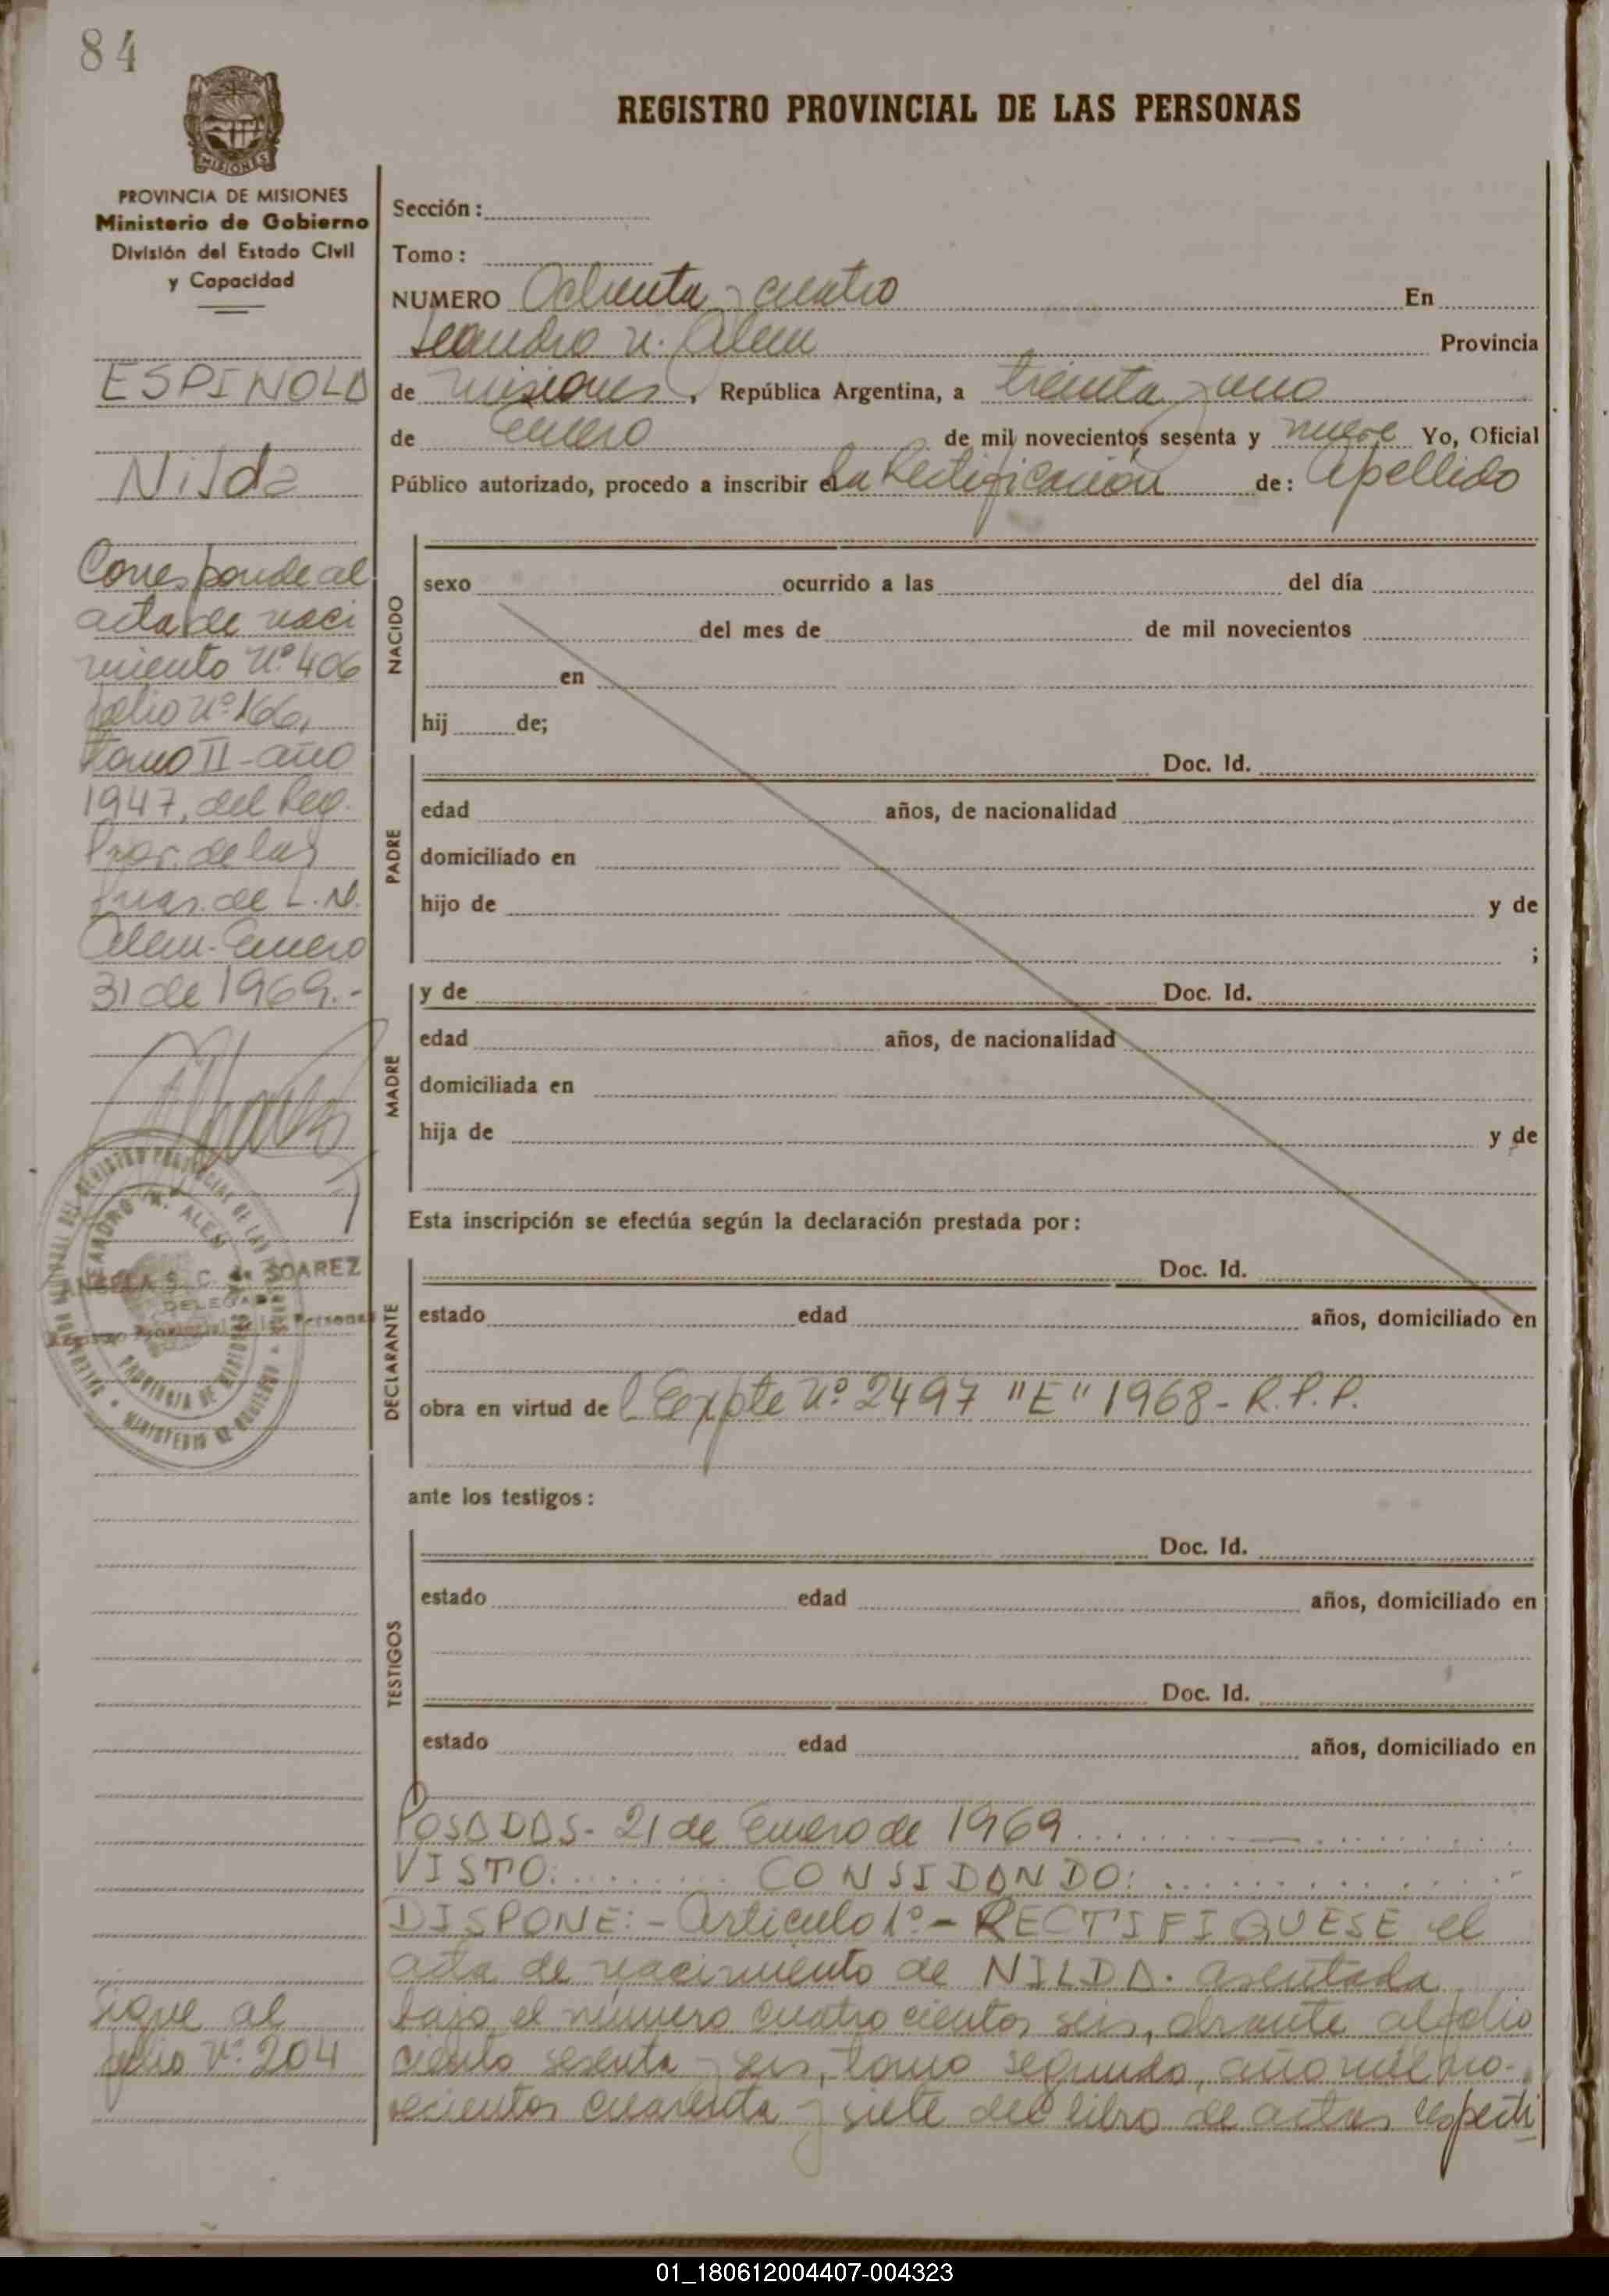 84
MISIONES
PROVINCIA DE MISIONES
Ministerio de Gobierno
División del Estado Civil
y Capacidad
ESPINOLA
Nilda
Corresponde al
acta de naci
miento Nº 406
folio Nº 166,
tomo II - año
1947, del Reg.
Prov. de las
Pnas. de L. N.
Alem - Enero
31 de 1969.-
LEANDRO N. ALEM
ANGELA S. C. de SOAREZ
DELEGADA
Registro Provincial de las Personas
PROVINCIA DE MISIONES
MINISTERIO DE GOBIERNO
Sigue al
folio Nº 204
REGISTRO PROVINCIAL DE LAS PERSONAS
Sección :
Tomo :
NUMERO Ochenta y cuatro En
Leandro N. Alem Provincia
de Misiones, República Argentina, a treinta y uno
de Enero de mil novecientos sesenta y nueve Yo, Oficial
Público autorizado, procedo a inscribir la Rectificación de: Apellido
NACIDO
sexo ocurrido a las del día
del mes de de mil novecientos
en
hij de;
PADRE
Doc. Id.
edad años, de nacionalidad
domiciliado en
hijo de y de
;
MADRE
y de Doc. Id.
edad años, de nacionalidad
domiciliada en
hija de y de
Esta inscripción se efectúa según la declaración prestada por:
DECLARANTE
Doc. Id.
estado edad años, domiciliado en
obra en virtud de l Expte Nº 2497 "E" 1968 - R.P.P.
ante los testigos:
TESTIGOS
Doc. Id.
estado edad años, domiciliado en
Doc. Id.
estado edad años, domiciliado en
POSADAS - 21 de Enero de 1969.........
VISTO:......... CONSIDANDO:.........
DISPONE:- Artículo 1º - RECTIFIQUESE el
acta de nacimiento de NILDA. asentada
bajo el número cuatrocientos seis, obrante al folio
ciento sesenta y seis, tomo segundo, año mil no-
vecientos cuarenta y siete del libro de actas respecti
01_180612004407-004323